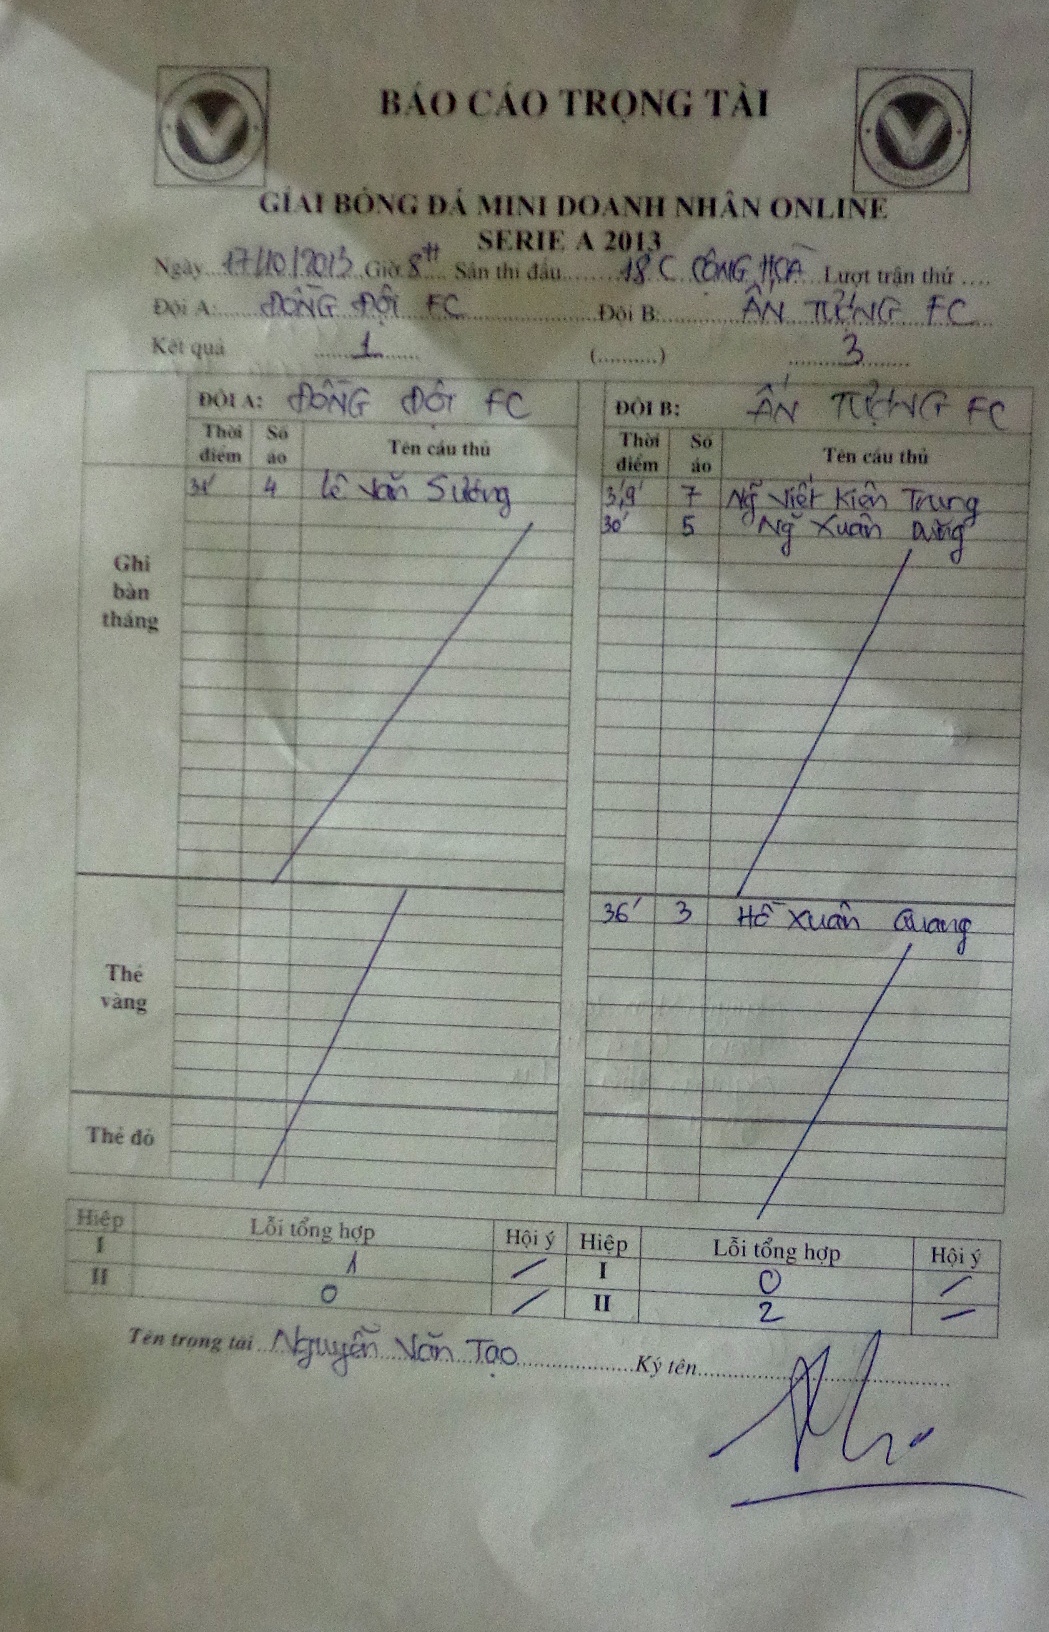 BÁO CÁO TRỌNG TÀI
GIẢI BÓNG ĐÁ MINI DOANH NHÂN ONLINE
SERIE A 2013
Ngày 17/10/2013 Giờ 8H Sân thi đấu 18 C CỘNG HOÀ Lượt trận thứ ....
Đội A: ĐỒNG ĐỘI FC Đội B: ẤN TƯỢNG FC
Kết quả 1 (..........) 3
ĐỘI A: ĐỒNG ĐỘI FC ĐỘI B: ẤN TƯỢNG FC
Thời điểm Số áo Tên cầu thủ Thời điểm Số áo Tên cầu thủ
Ghi bàn thắng
31' 4 Lê Văn Sương 3',9' 7 Ng Viết Kiên Trung
30' 5 Ng Xuân Dũng
Thẻ vàng
36' 3 Hồ Xuân Quang
Thẻ đỏ
Hiệp Lỗi tổng hợp Hội ý Hiệp Lỗi tổng hợp Hội ý
I 1 / I 0 /
II 0 / II 2 /
Tên trọng tài Nguyễn Văn Tạo Ký tên